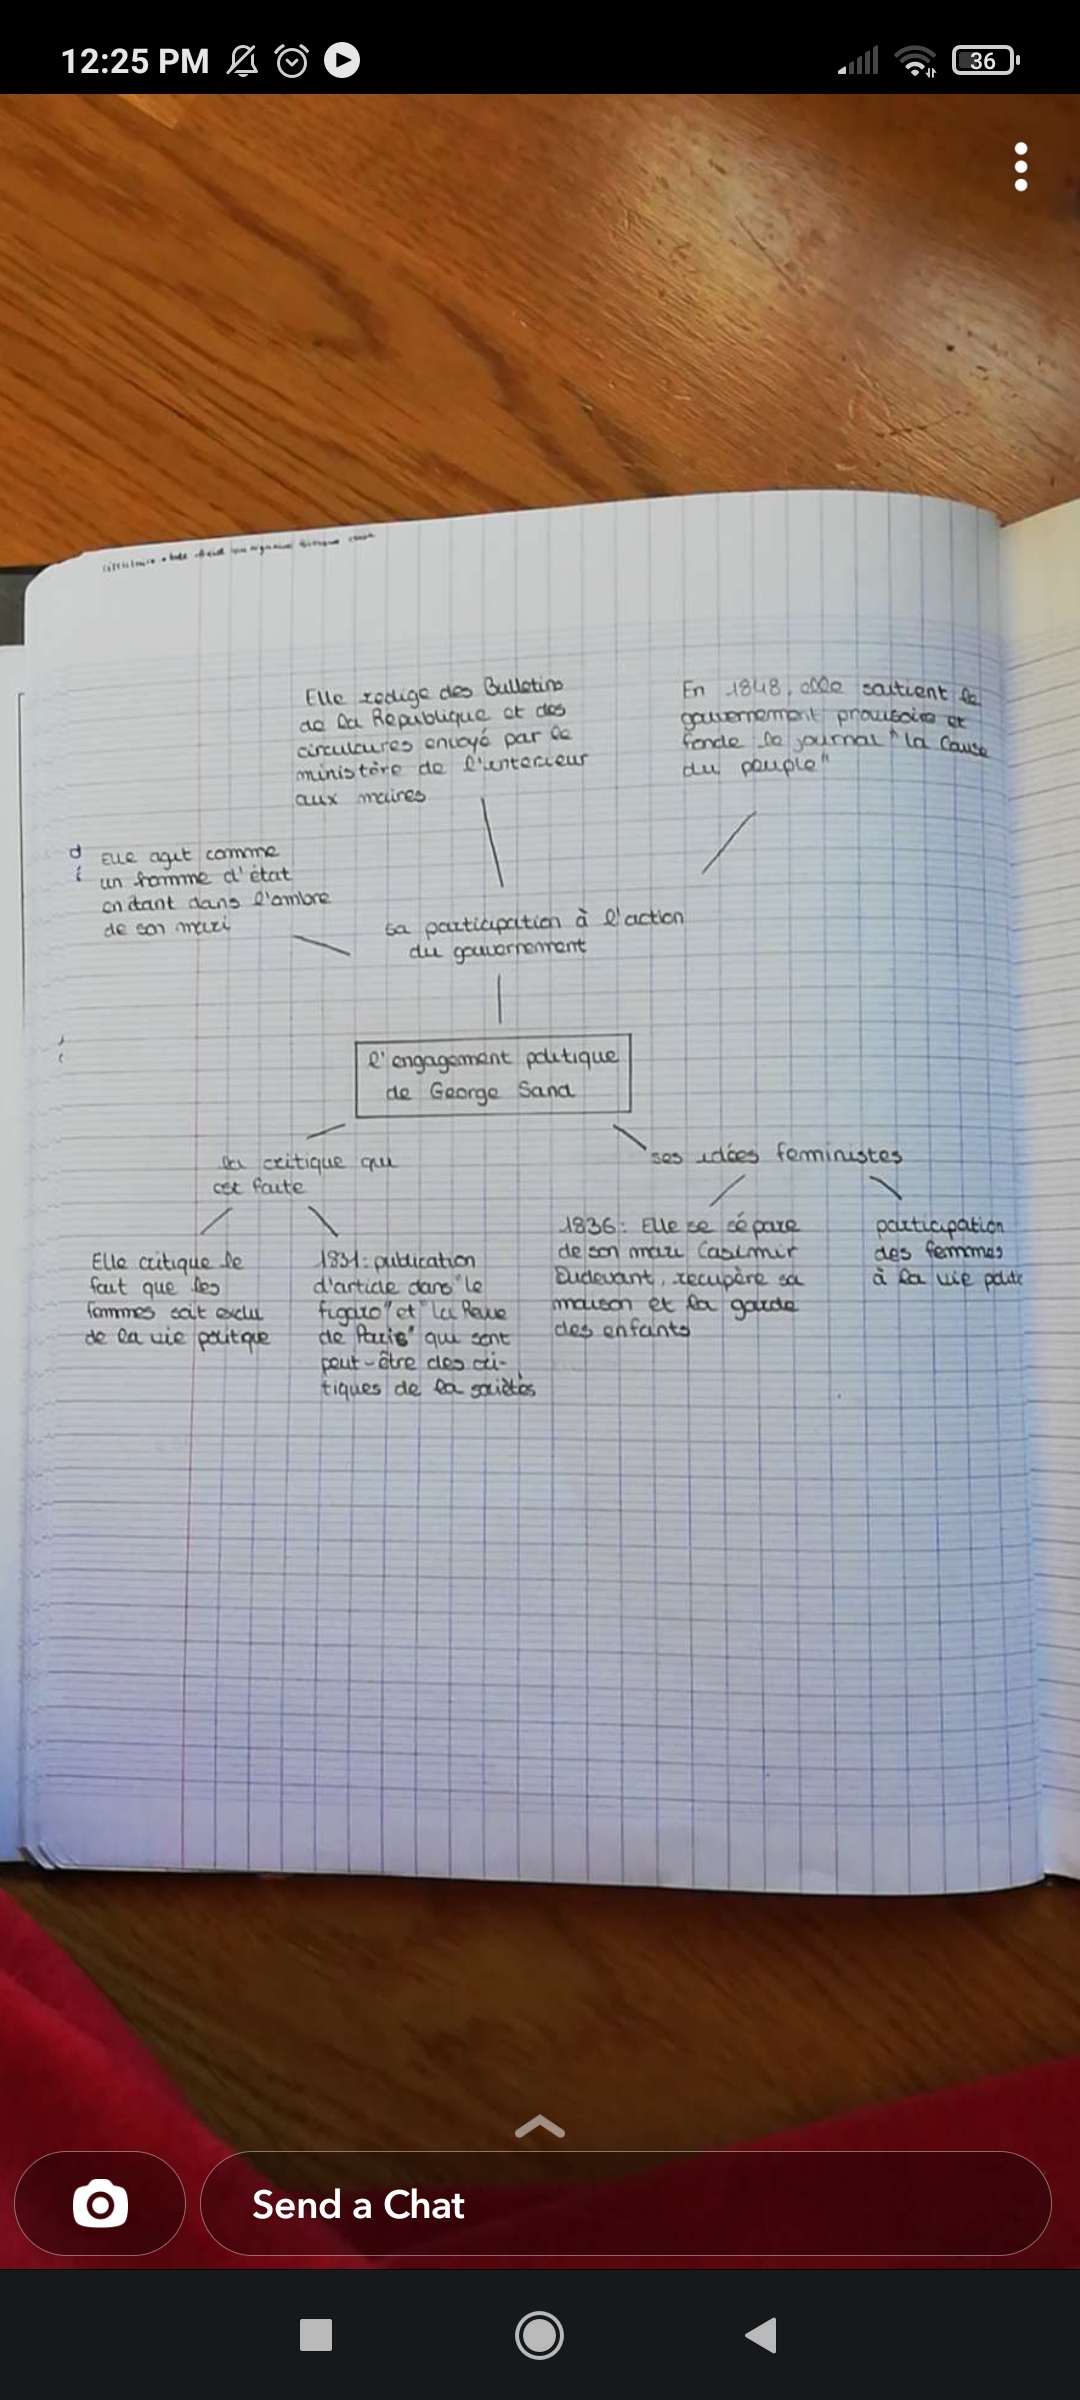 12:25 PM
36
Elle redige des Bulletins
de la Republique et des
circulaires envoyé par le
ministère de l'interieur
aux maires
En 1848, elle soutient le
gouvernement provisoire et
fonde le journal "la Cause
du peuple"
d
Elle agit comme
un homme d'état
en étant dans l'ombre
de son mari
sa participation à l'action
du gouvernement
l'engagement politique
de George Sand
la critique qui
est faite
ses idées feministes
Elle critique le
fait que les
femmes soit exclu
de la vie politque
1831: publication
d'article dans "le
figaro" et "la Revue
de Paris" qui sont
peut-être des cri-
tiques de la sociétés
1836: Elle se sépare
de son mari Casimir
Dudevant, recupère sa
maison et la garde
des enfants
participation
des femmes
à la vie
Send a Chat